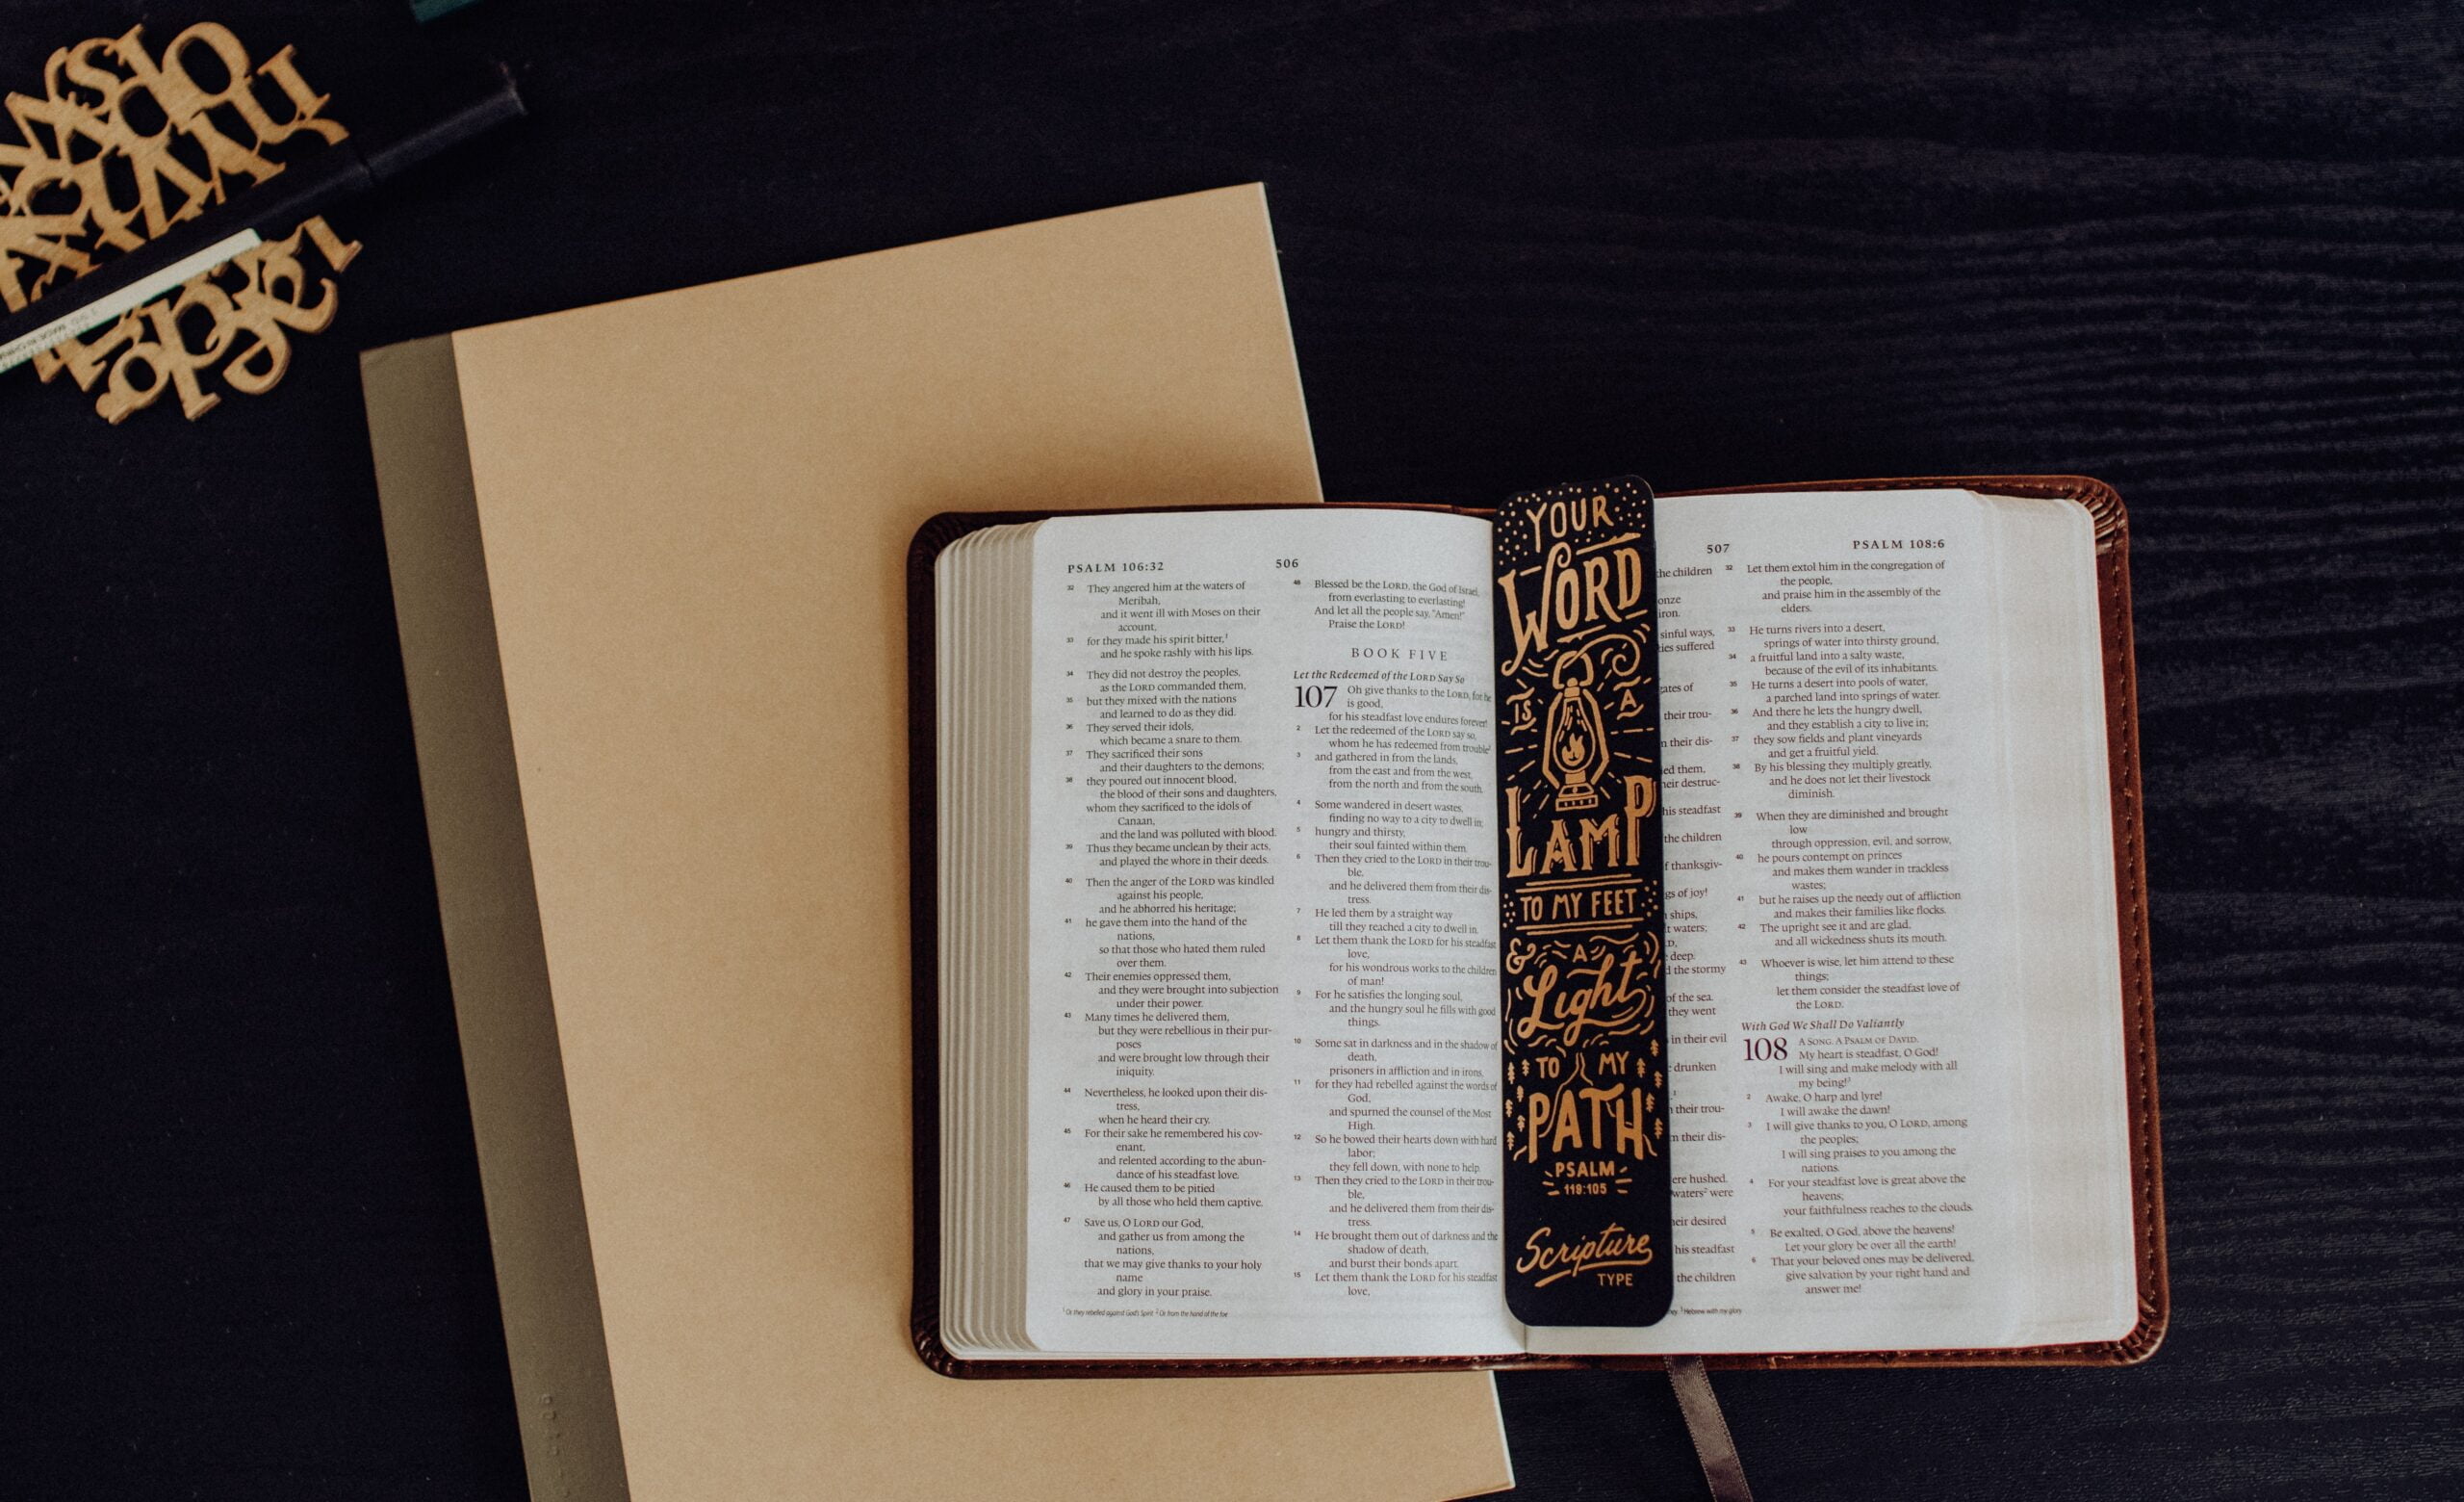 PSALM 106:32
506
32 They angered him at the waters of
Meribah,
and it went ill with Moses on their
account,
33 for they made his spirit bitter,1
and he spoke rashly with his lips.
34 They did not destroy the peoples,
as the LORD commanded them,
35 but they mixed with the nations
and learned to do as they did.
36 They served their idols,
which became a snare to them.
37 They sacrificed their sons
and their daughters to the demons;
38 they poured out innocent blood,
the blood of their sons and daughters,
whom they sacrificed to the idols of
Canaan,
and the land was polluted with blood.
39 Thus they became unclean by their acts,
and played the whore in their deeds.
40 Then the anger of the LORD was kindled
against his people,
and he abhorred his heritage;
41 he gave them into the hand of the
nations,
so that those who hated them ruled
over them.
42 Their enemies oppressed them,
and they were brought into subjection
under their power.
43 Many times he delivered them,
but they were rebellious in their pur-
poses
and were brought low through their
iniquity.
44 Nevertheless, he looked upon their dis-
tress,
when he heard their cry.
45 For their sake he remembered his cov-
enant,
and relented according to the abun-
dance of his steadfast love.
46 He caused them to be pitied
by all those who held them captive.
47 Save us, O LORD our God,
and gather us from among the
nations,
that we may give thanks to your holy
name
and glory in your praise.
1 Or they rebelled against God's Spirit 2 Or from the hand of the foe
48 Blessed be the LORD, the God of Israel,
from everlasting to everlasting!
And let all the people say, "Amen!"
Praise the LORD!
BOOK FIVE
Let the Redeemed of the LORD Say So
107 Oh give thanks to the LORD, for he
is good,
for his steadfast love endures forever!
2 Let the redeemed of the LORD say so,
whom he has redeemed from trouble2
3 and gathered in from the lands,
from the east and from the west,
from the north and from the south.
4 Some wandered in desert wastes,
finding no way to a city to dwell in;
5 hungry and thirsty,
their soul fainted within them.
6 Then they cried to the LORD in their trou-
ble,
and he delivered them from their dis-
tress.
7 He led them by a straight way
till they reached a city to dwell in.
8 Let them thank the LORD for his steadfast
love,
for his wondrous works to the children
of man!
9 For he satisfies the longing soul,
and the hungry soul he fills with good
things.
10 Some sat in darkness and in the shadow of
death,
prisoners in affliction and in irons,
11 for they had rebelled against the words of
God,
and spurned the counsel of the Most
High.
12 So he bowed their hearts down with hard
labor;
they fell down, with none to help.
13 Then they cried to the LORD in their trou-
ble,
and he delivered them from their dis-
tress.
14 He brought them out of darkness and the
shadow of death,
and burst their bonds apart.
15 Let them thank the LORD for his steadfast
love,
YOUR
WORD
IS A
LAMP
TO MY FEET
& A
Light
TO MY
PATH
PSALM
119:105
Scripture
TYPE
507
PSALM 108:6
the children
onze
iron.
sinful ways,
ies suffered
ates of
their trou-
n their dis-
ed them,
heir destruc-
his steadfast
the children
f thanksgiv-
gs of joy!
ships,
t waters;
deep.
d the stormy
of the sea.
they went
in their evil
drunken
their trou-
n their dis-
ere hushed.
waters2 were
eir desired
his steadfast
the children
3 Hebrew with my glory
32 Let them extol him in the congregation of
the people,
and praise him in the assembly of the
elders.
33 He turns rivers into a desert,
springs of water into thirsty ground,
34 a fruitful land into a salty waste,
because of the evil of its inhabitants.
35 He turns a desert into pools of water,
a parched land into springs of water.
36 And there he lets the hungry dwell,
and they establish a city to live in;
37 they sow fields and plant vineyards
and get a fruitful yield.
38 By his blessing they multiply greatly,
and he does not let their livestock
diminish.
39 When they are diminished and brought
low
through oppression, evil, and sorrow,
40 he pours contempt on princes
and makes them wander in trackless
wastes;
41 but he raises up the needy out of affliction
and makes their families like flocks.
42 The upright see it and are glad,
and all wickedness shuts its mouth.
43 Whoever is wise, let him attend to these
things;
let them consider the steadfast love of
the LORD.
With God We Shall Do Valiantly
108 A SONG. A PSALM OF DAVID.
My heart is steadfast, O God!
I will sing and make melody with all
my being!3
2 Awake, O harp and lyre!
I will awake the dawn!
3 I will give thanks to you, O LORD, among
the peoples;
I will sing praises to you among the
nations.
4 For your steadfast love is great above the
heavens;
your faithfulness reaches to the clouds.
5 Be exalted, O God, above the heavens!
Let your glory be over all the earth!
6 That your beloved ones may be delivered,
give salvation by your right hand and
answer me!